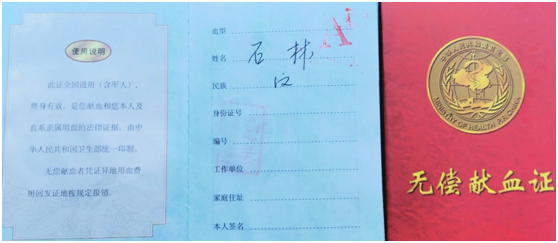 使用说明
此证全国通用（含军人），
终身有效，是您献血和您本人及
直系亲属用血的法律证据。由中
华人民共和国卫生部统一印制。
无偿献血者凭证异地用血费
用回发证地按规定报销。
血型
姓名 石林
民族 汉
身份证号
编号
工作单位
家庭住址
本人签名
中华人民共和国卫生部
MINISTRY OF HEALTH P.R.CHINA
无偿献血证